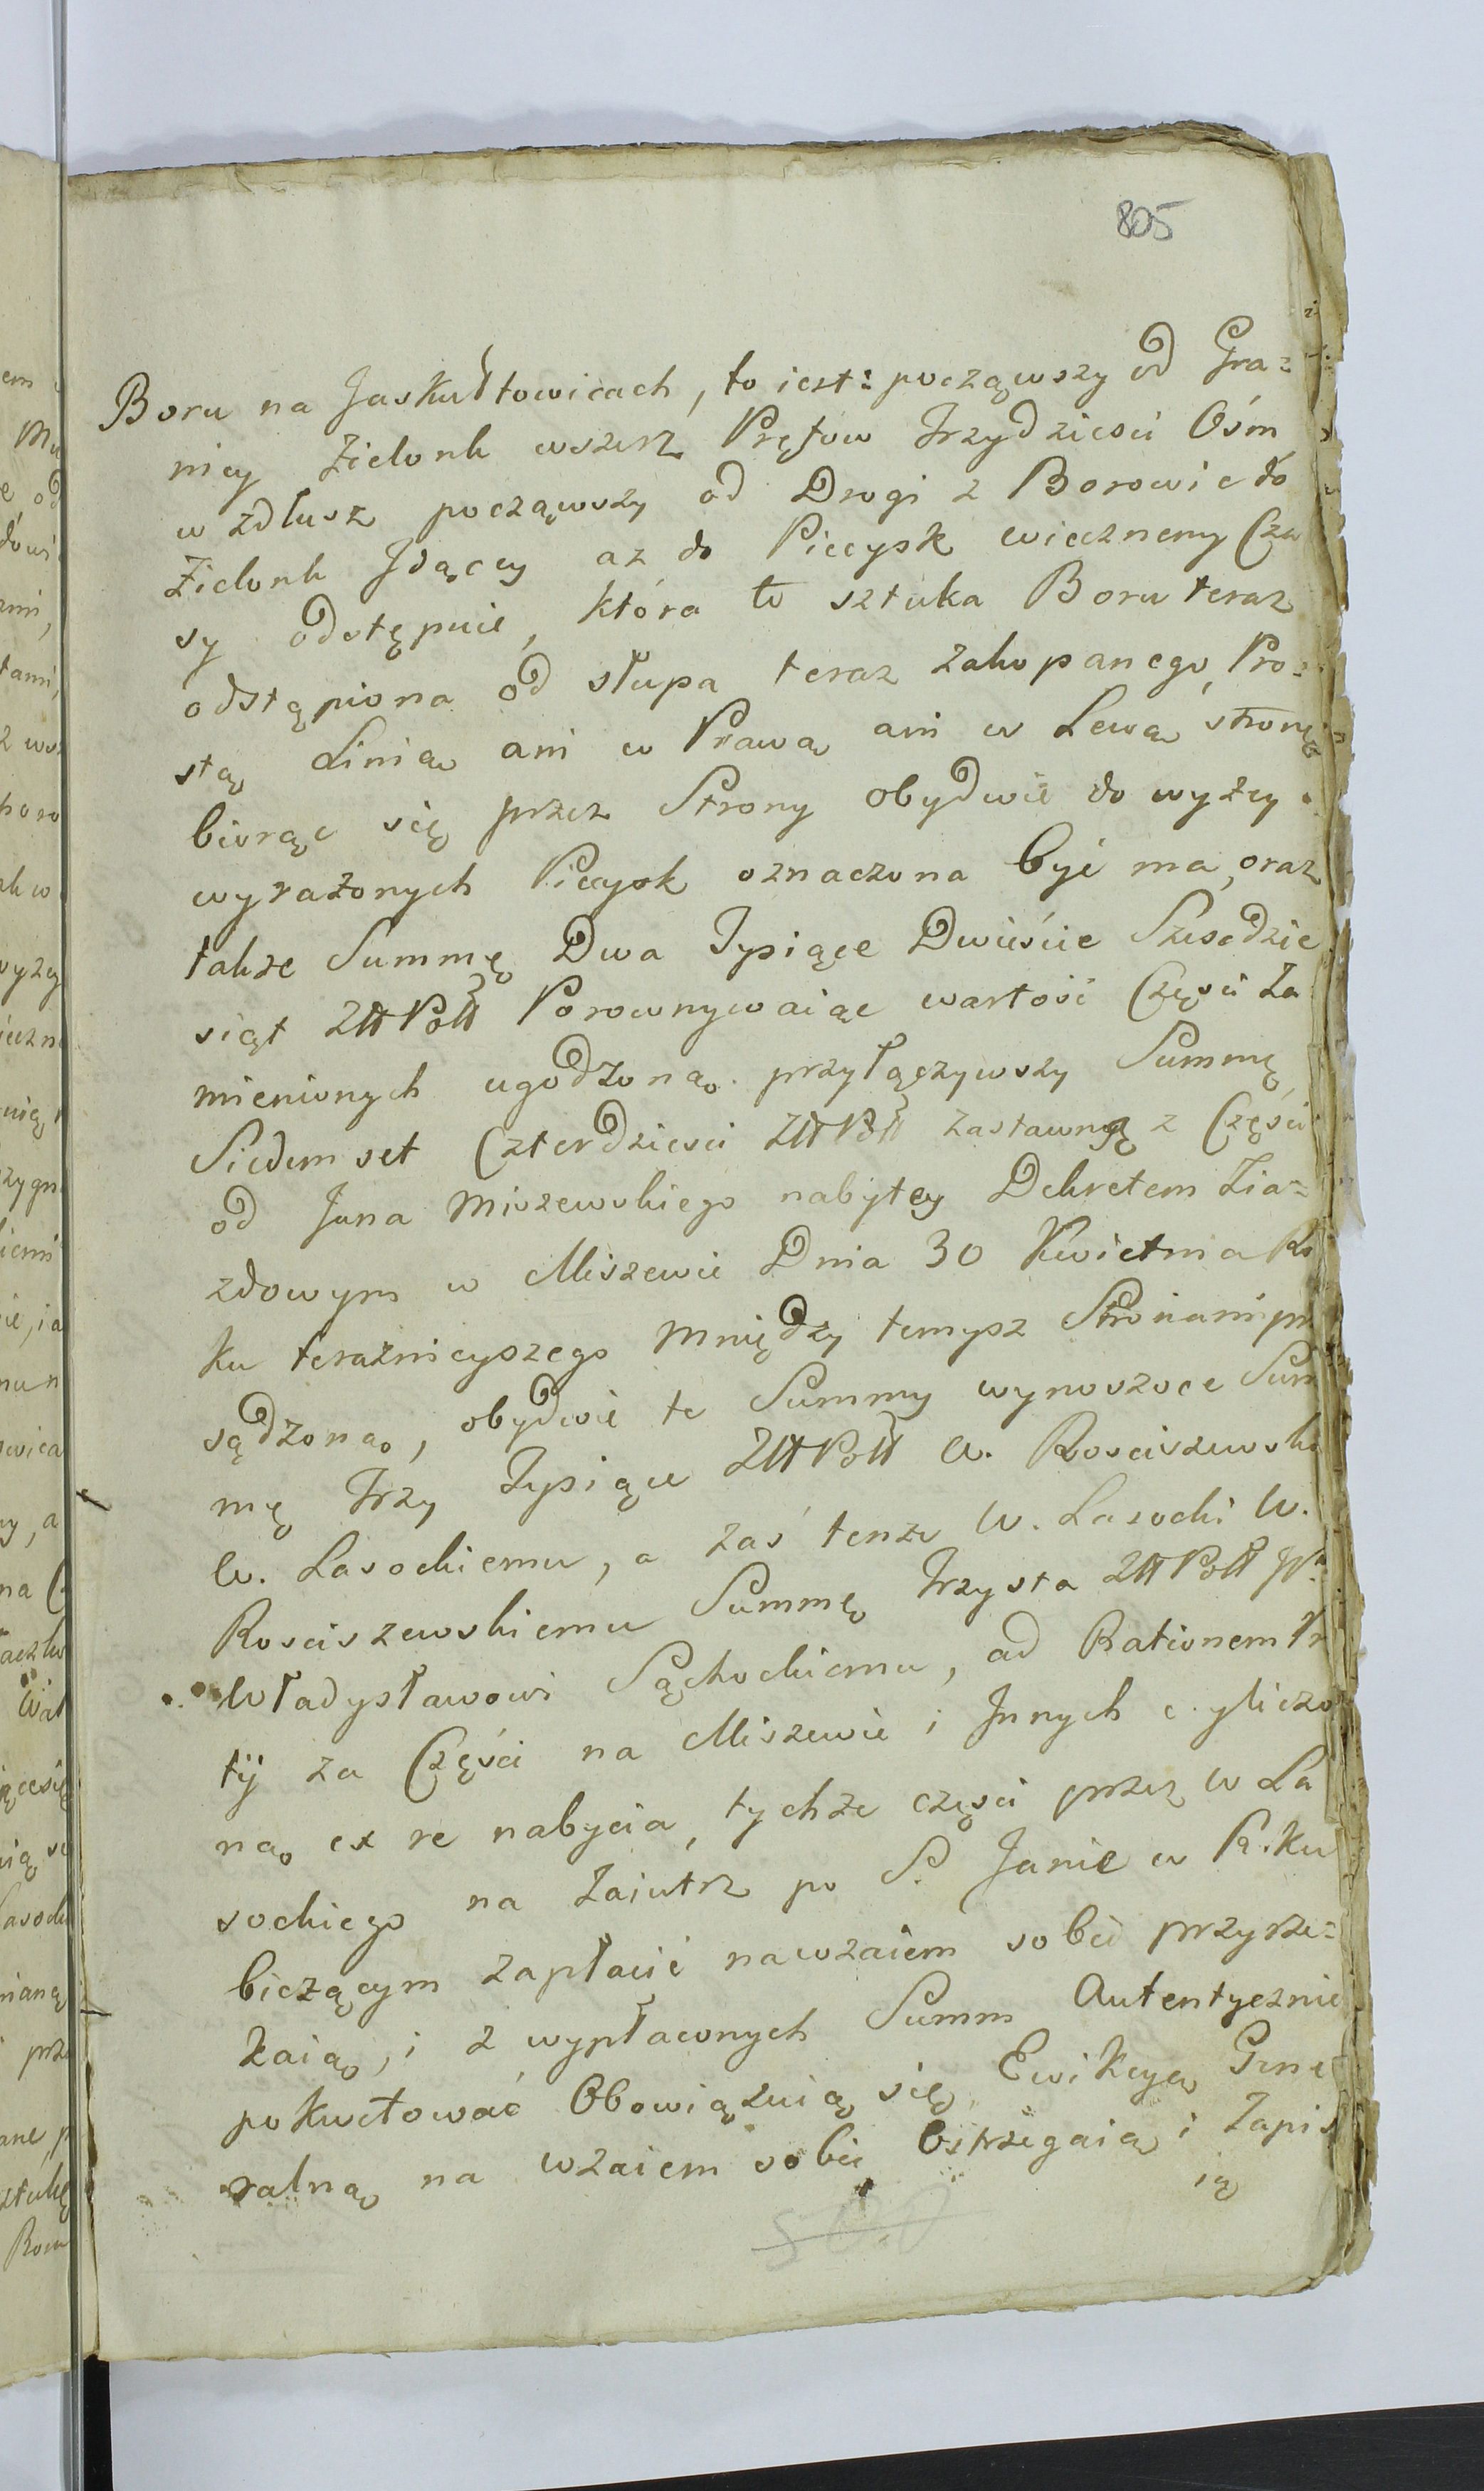 805
Boru na Jaskułtowicach, to iest: począwszy od Gra=
nicy Zielonk wszerz Prętow Trzydziesci Ośm
w zdłusz począwszy od Drogi z Borowic do
Zielonk Jdący az do Piecysk wiecznemy Cza
sy odstępuie, która to sztuka Boru teraz
odstąpiona od słupa teraz zakopanego, Pro=
stą Linią ani w Prawą ani w Lewą stronę
biorąc się przez Strony obydwie do wyżey
wyrażonych Piecysk oznaczona być ma, oraz
takze Summę Dwa Tysiące Dwieście Szesdzie
siąt Złł Poll Porownywaiąc wartość Części Za
mienionych ugodzoną przyłączywszy Summę
Siedmset Czterdziesci Złł Poll zastawną z Części
od Jana Miszewskiego nabytey Dekretem Zia=
zdowym w Miszewie Dnia 30 Kwietnia Ro
ku teraznieyszego Mniędzy temysz Stronami prz
sądzoną, obydwie te Summy wynoszoce Sum
mę Trzy Tysiące Złł Poll W. Rosciszewski
W. Lasockiemu, a zaś tenze W. Lasocki W.
Rosciszewskiemu Summę Trzysta Złł Poll
Władysławowi Sąchockiemu, ad Rationem
tij za Części na Miszewie i Jnnych wyliczo
ną ex re nabycia, tychze części przez W La
sockiego na Zaiutrz po S. Janie w Roku
bieżącym zapłacić nawzaiem sobie przyrze=
kaią, i z wypłaconych Summ Autentycznie
pokwetować Obowiązuią się, Ewikcyą Gene
ralną na wzaiem sobie Ostrzegaią i Zapis
ią